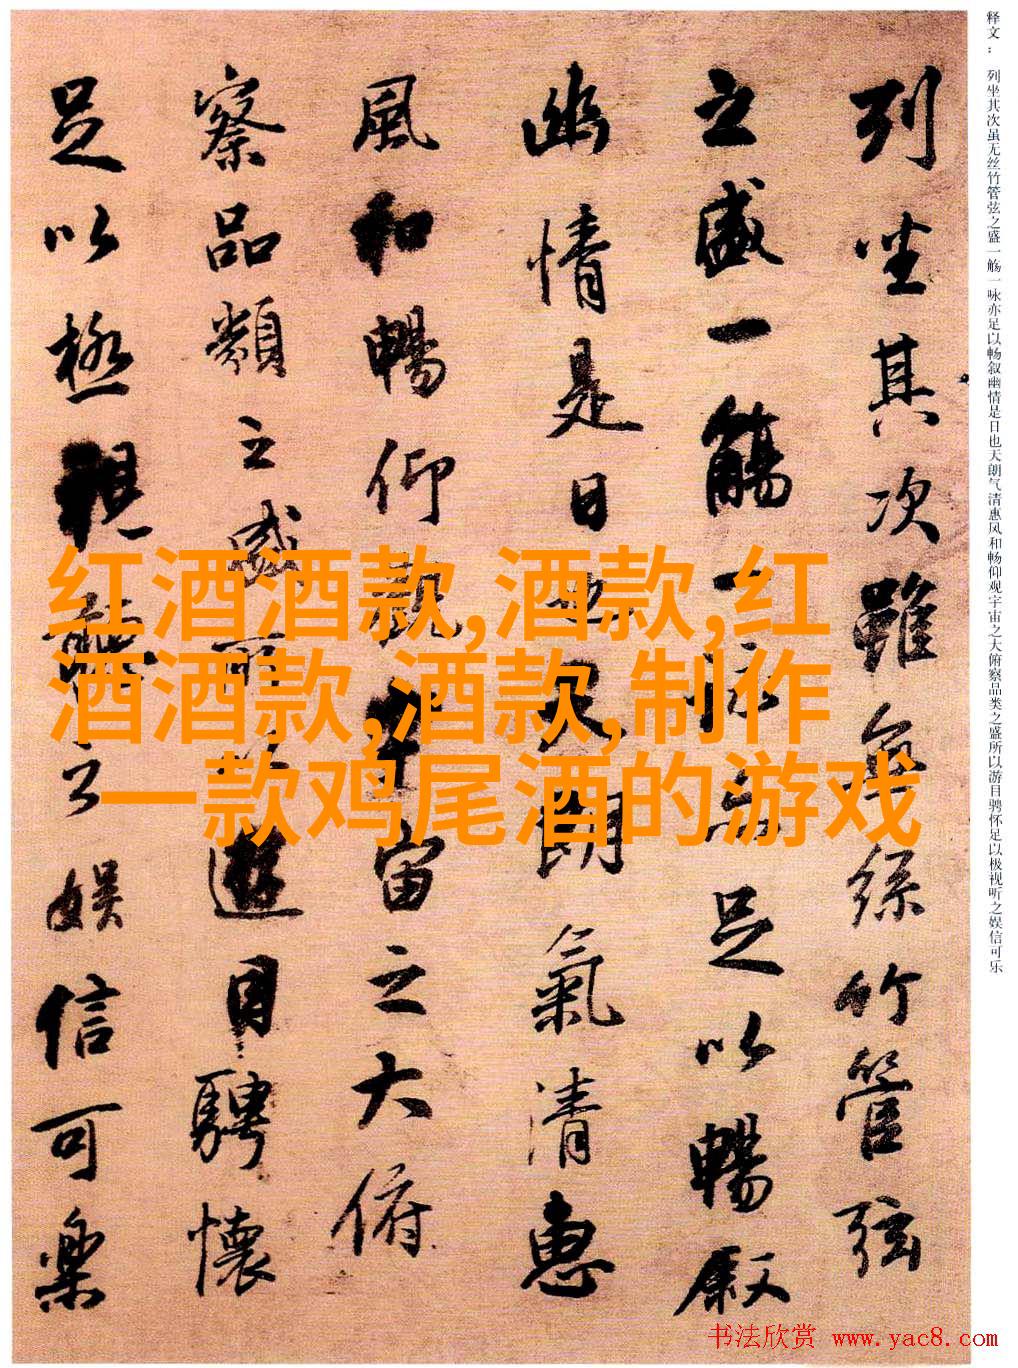 释文：列坐其次虽无丝竹管弦之盛一觞一咏亦足以畅叙幽情是日也天朗气清惠风和畅仰观宇宙之大俯察品类之盛所以游目骋怀足以极视听之娱信可乐
列坐其次雖無絲竹管弦
之盛一觴一詠亦足以暢叙
幽情是日也天朗氣清惠
風和暢仰觀宇宙之大俯
察品類之盛所以遊目騁懷
足以極視聽之娱信可樂
红酒酒款,酒款,红
酒酒款,酒款,制作
一款鸡尾酒的游戏
书法欣赏 www.yac8.com